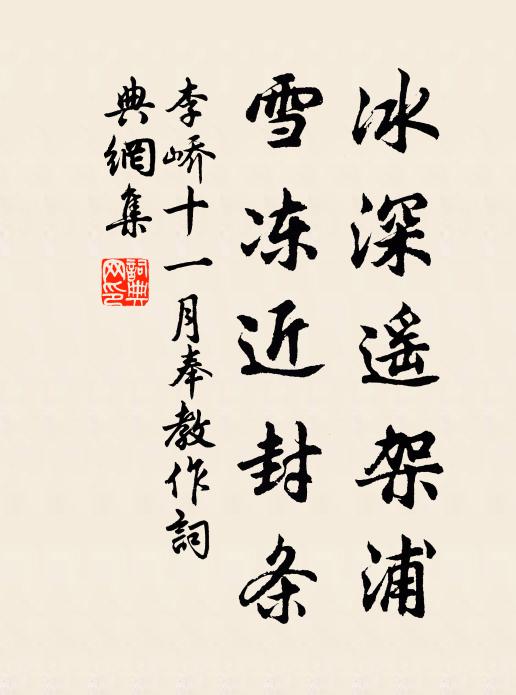 冰深遥架浦
雪冻近封条
李峤十一月奉教作詞
典網集
詞典
网印